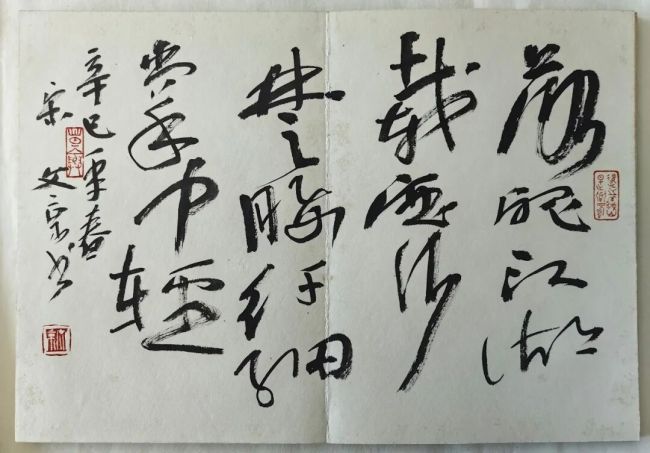 落魄江湖
載酒行
楚腰纤細
掌中輕
辛巳春
宋文京书